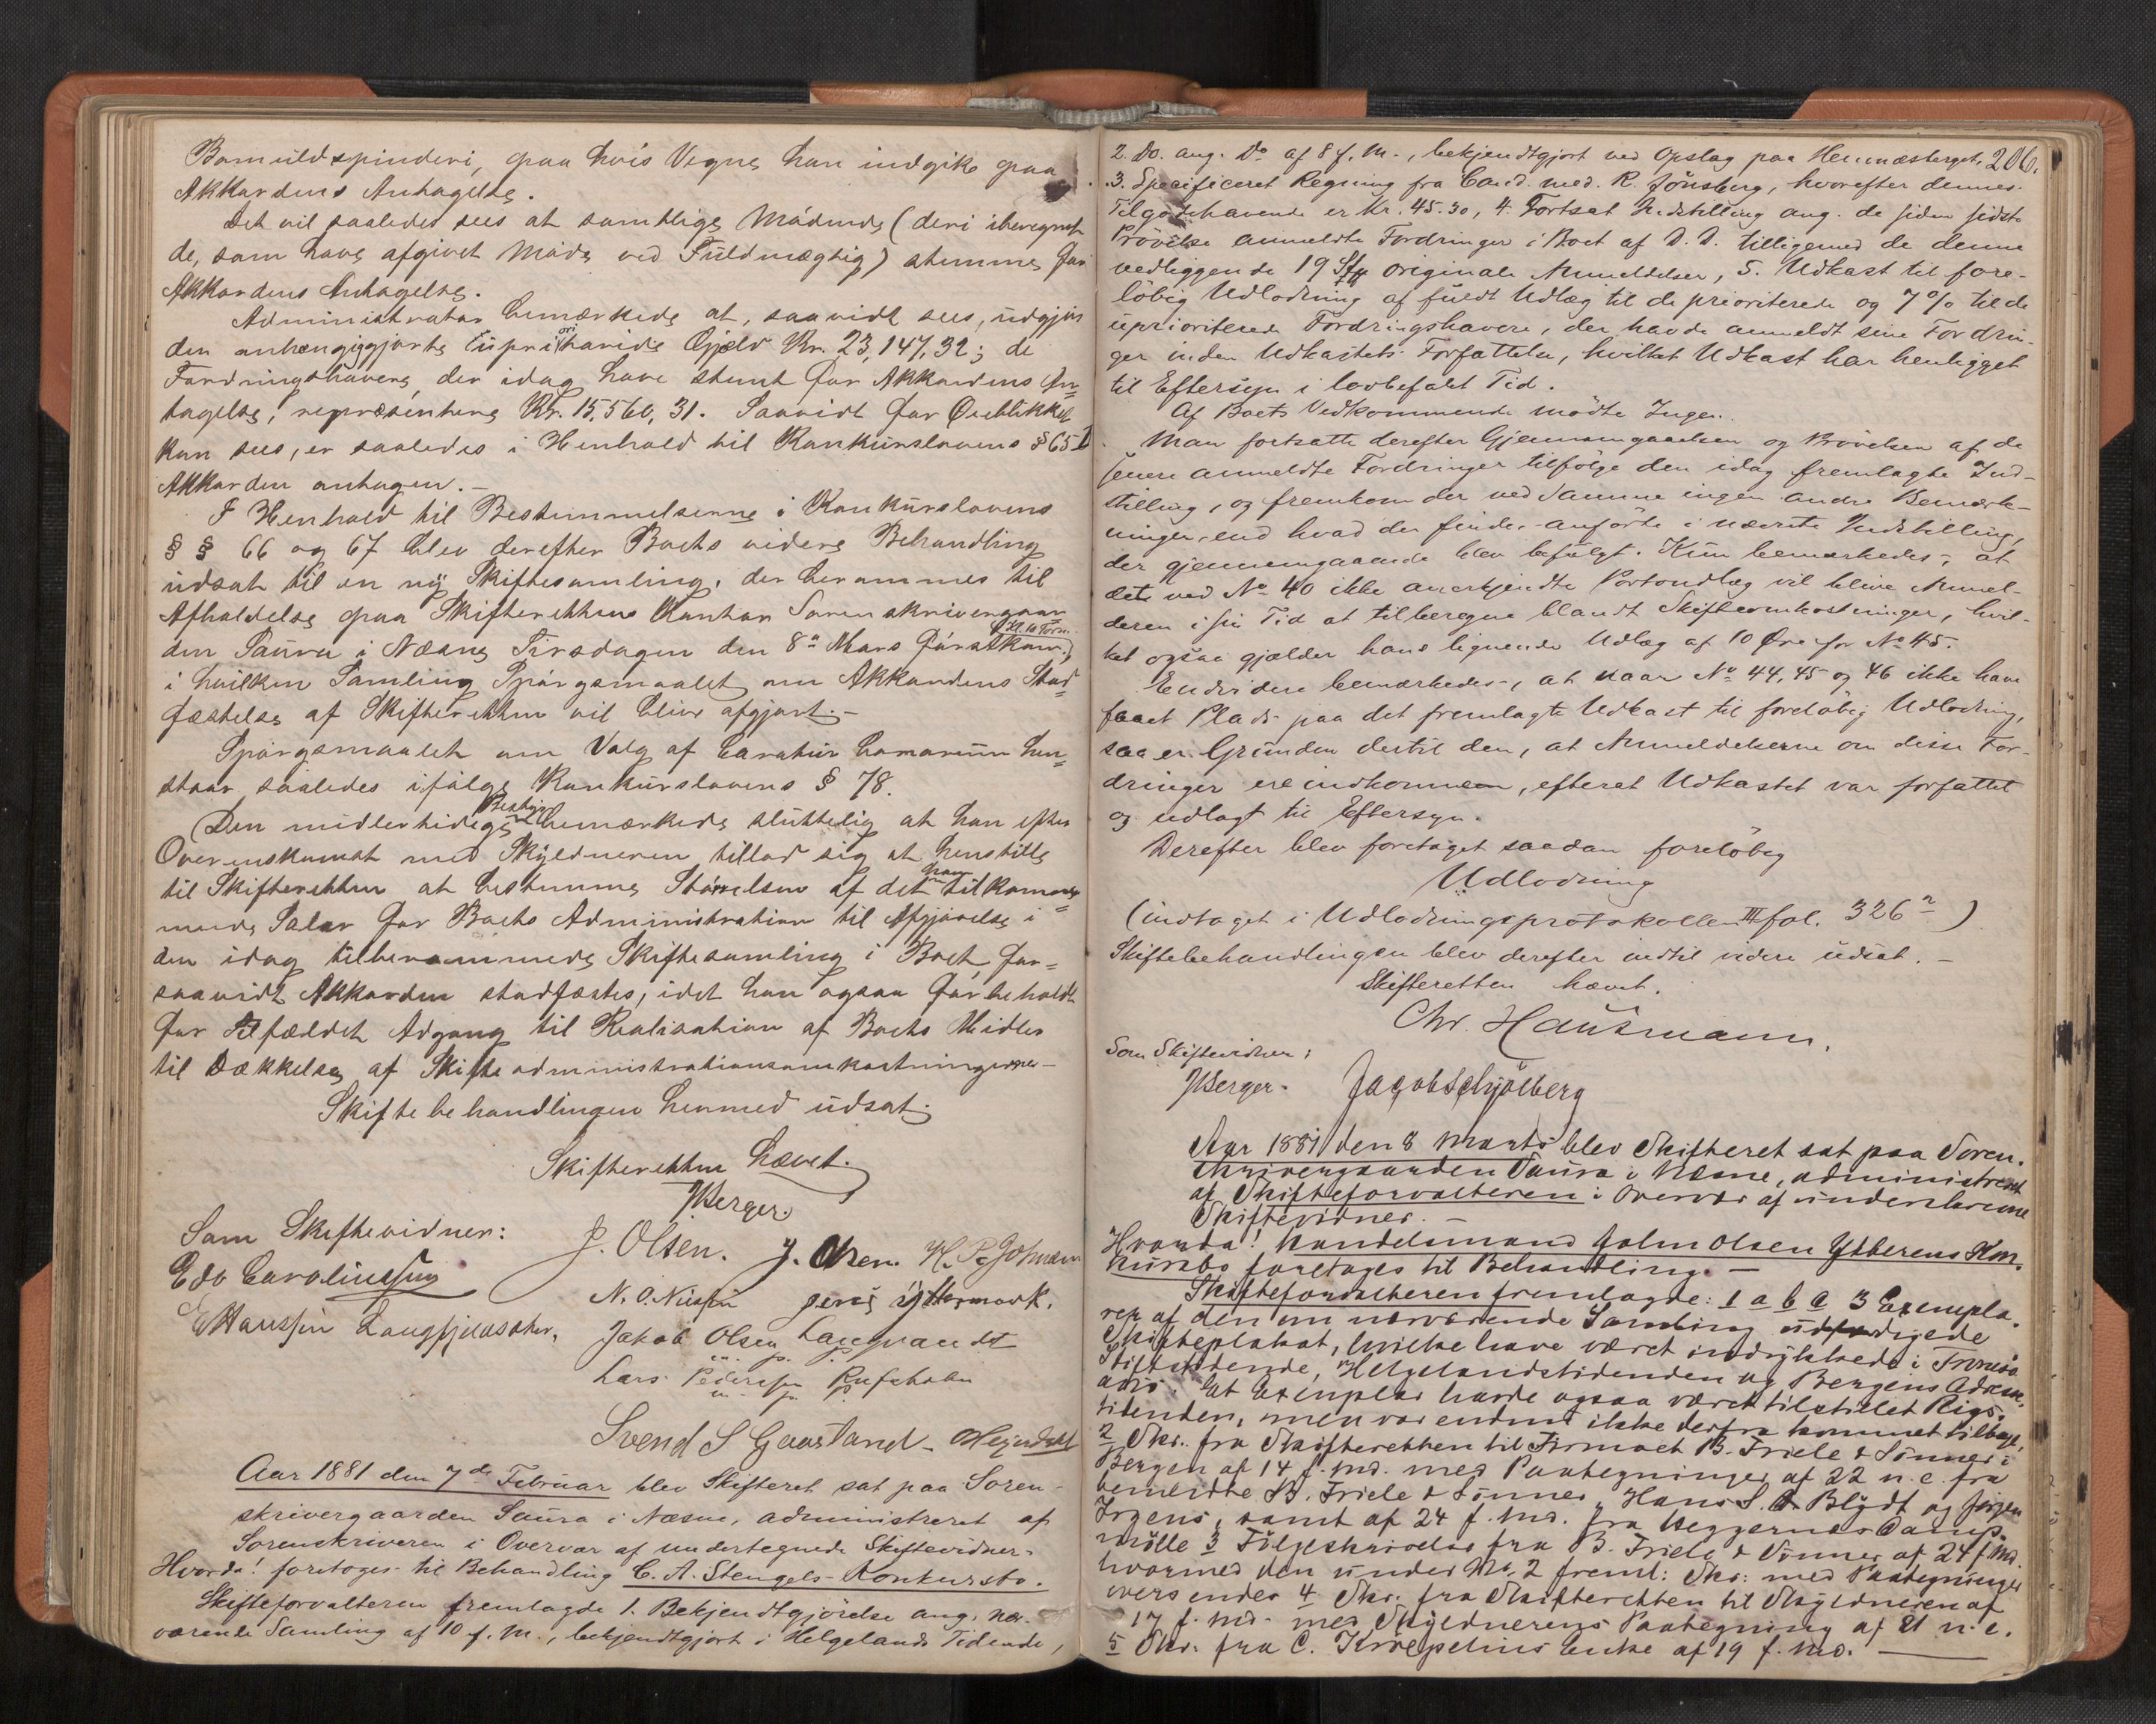 Bomuldspinderi, paa hvis Vegne han indgik paa
Akkordens Antagelse.
Det vil saaledes sees at samtlige Mödende (deri iberegnet
de, som have afgivet Möde ved Fuldmægtig) stemme for
Akkordens Antagelse.
Administrator bemærkede at, saavidt sees, udgjör
den anhængiggjorte uprioriterede Gjæld Kr. 23,147,32; de
Fordringshavere, der idag have stemt for Akkordens An=
tagelse, repræsentere Kr. 15,560,31. Saavidt for Öieblikket
kan sees, er saaledes i Henhold til Konkurslovens § 65
Akkorden antagen. –
I Henhold til Bestemmelserne i Konkurslovens
§ § 66 og 67 blev derefter Boets videre Behandling
udsat til en ny Skiftesamling, der berammes til
Afholdelse paa Skifterettens Kontor Sorenskrivergaar
den Saura i Næsne Tirsdagen den 8de Mars förstkom.,
Kl. 10 Form.
i hvilken Samling Spörgsmaalet om Akkordens Stad=
fæstelse af Skifteretten vil blive afgjort. –
Spörgsmaalet om Valg af Curator bonorum hen=
staar saaledes ifölge Konkurslovens § 78.
Den midlertidige Bestyrer bemærkede sluttelig at han efter
Overenskomst med Skyldneren tillod sig at henstille
til Skifteretten at bestemme Störrelsen af det ham tilkom=
mende Salær for Boets Administration til Afgjörelse i
den idag tilberammede Skiftesamling i Boet for=
saavidt Akkorden stadfæstes, idet han ogsaa forbeholdt
for Tilfældet Adgang til Realisation af Boets Midler
til Dækkelse af Skifteadministrationsomkostningerne –
Skiftebehandlingen hermed udsat.
Skifteretten hævet.
JBerger.
Som Skiftevidner:
J. Olsen. J. Olsen. H. P.
Edv Caroliussen
N. O. Nilssen Jens Yttermork.
EHanssen
Jakob Olsen Langvandt
m. p. P.
Lars Pedersen
m. p. P.
Svend S Gaasland
Aar 1881 den 7de Februar blev Skifteret sat paa Soren-
skrivergaarden Saura i Næsne, administreret af
Sorenskriveren i Overvær af undertegnede Skiftevidner.
Hvorda! foretoges til Behandling C. A. Stengels Konkursbo.
Skifteforvalteren fremlagde 1. Bekjendtgjörelse ang. nær-
værende Samling af 10 f. M., bekjendtgjort i Helgelands Tidende,
206.
2. Do. ang. Do af 8 f. M., bekjendtgjort ved Opslag paa Hemnæsberget,
3. Specificeret Regning fra Cand. med. R. Jönsberg, hvorefter dennes
Tilgodehavende er Kr. 45.30, 4. Fortsat Indstilling ang. de siden sidste
Prövelse anmeldte Fordringer i Boet af D. D. tilligemed de denne
vedliggende 19 Stkr originale Anmeldelser, 5. Udkast til fore-
löbig Udlodning af fuldt Udlæg til de prioriterede og 7% til de
uprioriterede Fordringshavere, der havde anmeldt sine Fordrin-
ger inden Udkastets Forfattelse, hvilket Udkast har henligget
til Eftersyn i lovbefalet Tid.
Af Boets Vedkommende mödte Ingen.
Man fortsatte derefter Gjennemgaaelsen og Prövelsen af de
senere anmeldte Fordringer tilfölge den idag fremlagte Ind-
stilling, og fremkom der ved Samme ingen andre Bemærk-
ninger, end hvad der findes anförte i nævnte Indstilling,
der gjennemgaaende blev befulgt. Kun bemærkedes, at
det ved No 40 ikke anerkjendte Portoudlæg vil blive Anmel-
deren i sin Tid at tilberegne blandt Skifteomkostninger, hvil-
ket ogsaa gjælder hans lignende Udlæg af 10 Öre for No 45.
Endvidere bemærkedes, at naar No 44, 45 og 46 ikke have
faaet Plads paa det fremlagte Udkast til forelöbig Udlodning,
saa er Grunden dertil den, at Anmeldelserne om disse For-
dringer ere indkommen, efterat Udkastet var forfattet
og udlagt til Eftersyn.
Derefter blev foretaget saadan forelöbig
Udlodning
(indtaget i Udlodningsprotokollen III fol. 326)
Skiftebehandlingen blev derefter indtil videre udsat. –
Skifteretten hævet.
Chr. Hausmann.
Som Skiftevidner:
JBerger. Jacob Schjölberg
Aar 1881 den 8 Marts blev Skifteret sat paa Soren-
skrivergaarden Saura i Næsne, administreret
af Skifteforvalteren i Overvær af underskrevne
Skiftevidner. –
Hvorda! Handelsmand John Olsen Ytterens Kon-
kursbo foretages til Behandling. –
Skifteforvalteren fremlagde: 1 a b c 3 Exempla-
rer af den om nærværende Samling udfærdigede
Skifteplakat, hvilke have været indrykkede i Tromsö
Stiftstidende, Helgelandstidenden og Bergens Adresse-
avis. Et Exemplar havde ogsaa været tilstillet Rigs-
tidenden, men var endnu ikke derfra kommet tilbage,
2 Skr. fra Skifteretten til Firmaet B. Friele & Sönner i
Bergen af 14 f. Md. med Paategninger af 22 n. e. fra
bemeldte B. Friele & Sönner, Hans S. Blydt og Jörgen
Irgens, samt af 24 f. Md. fra Heggernes Damp-
mölle 3 Fölgeskrivelse fra B. Friele & Sönner af 24 f Md.
hvormed den under No. 2 freml: Skr: med Paategninger
oversendes 4 Skr. fra Skifteretten til Skyldneren af
17 f. Md. med Skyldnerens Paategning af 21 n. e.
5 Skr. fra C. Kroepelins Enke af 19 f. Md.